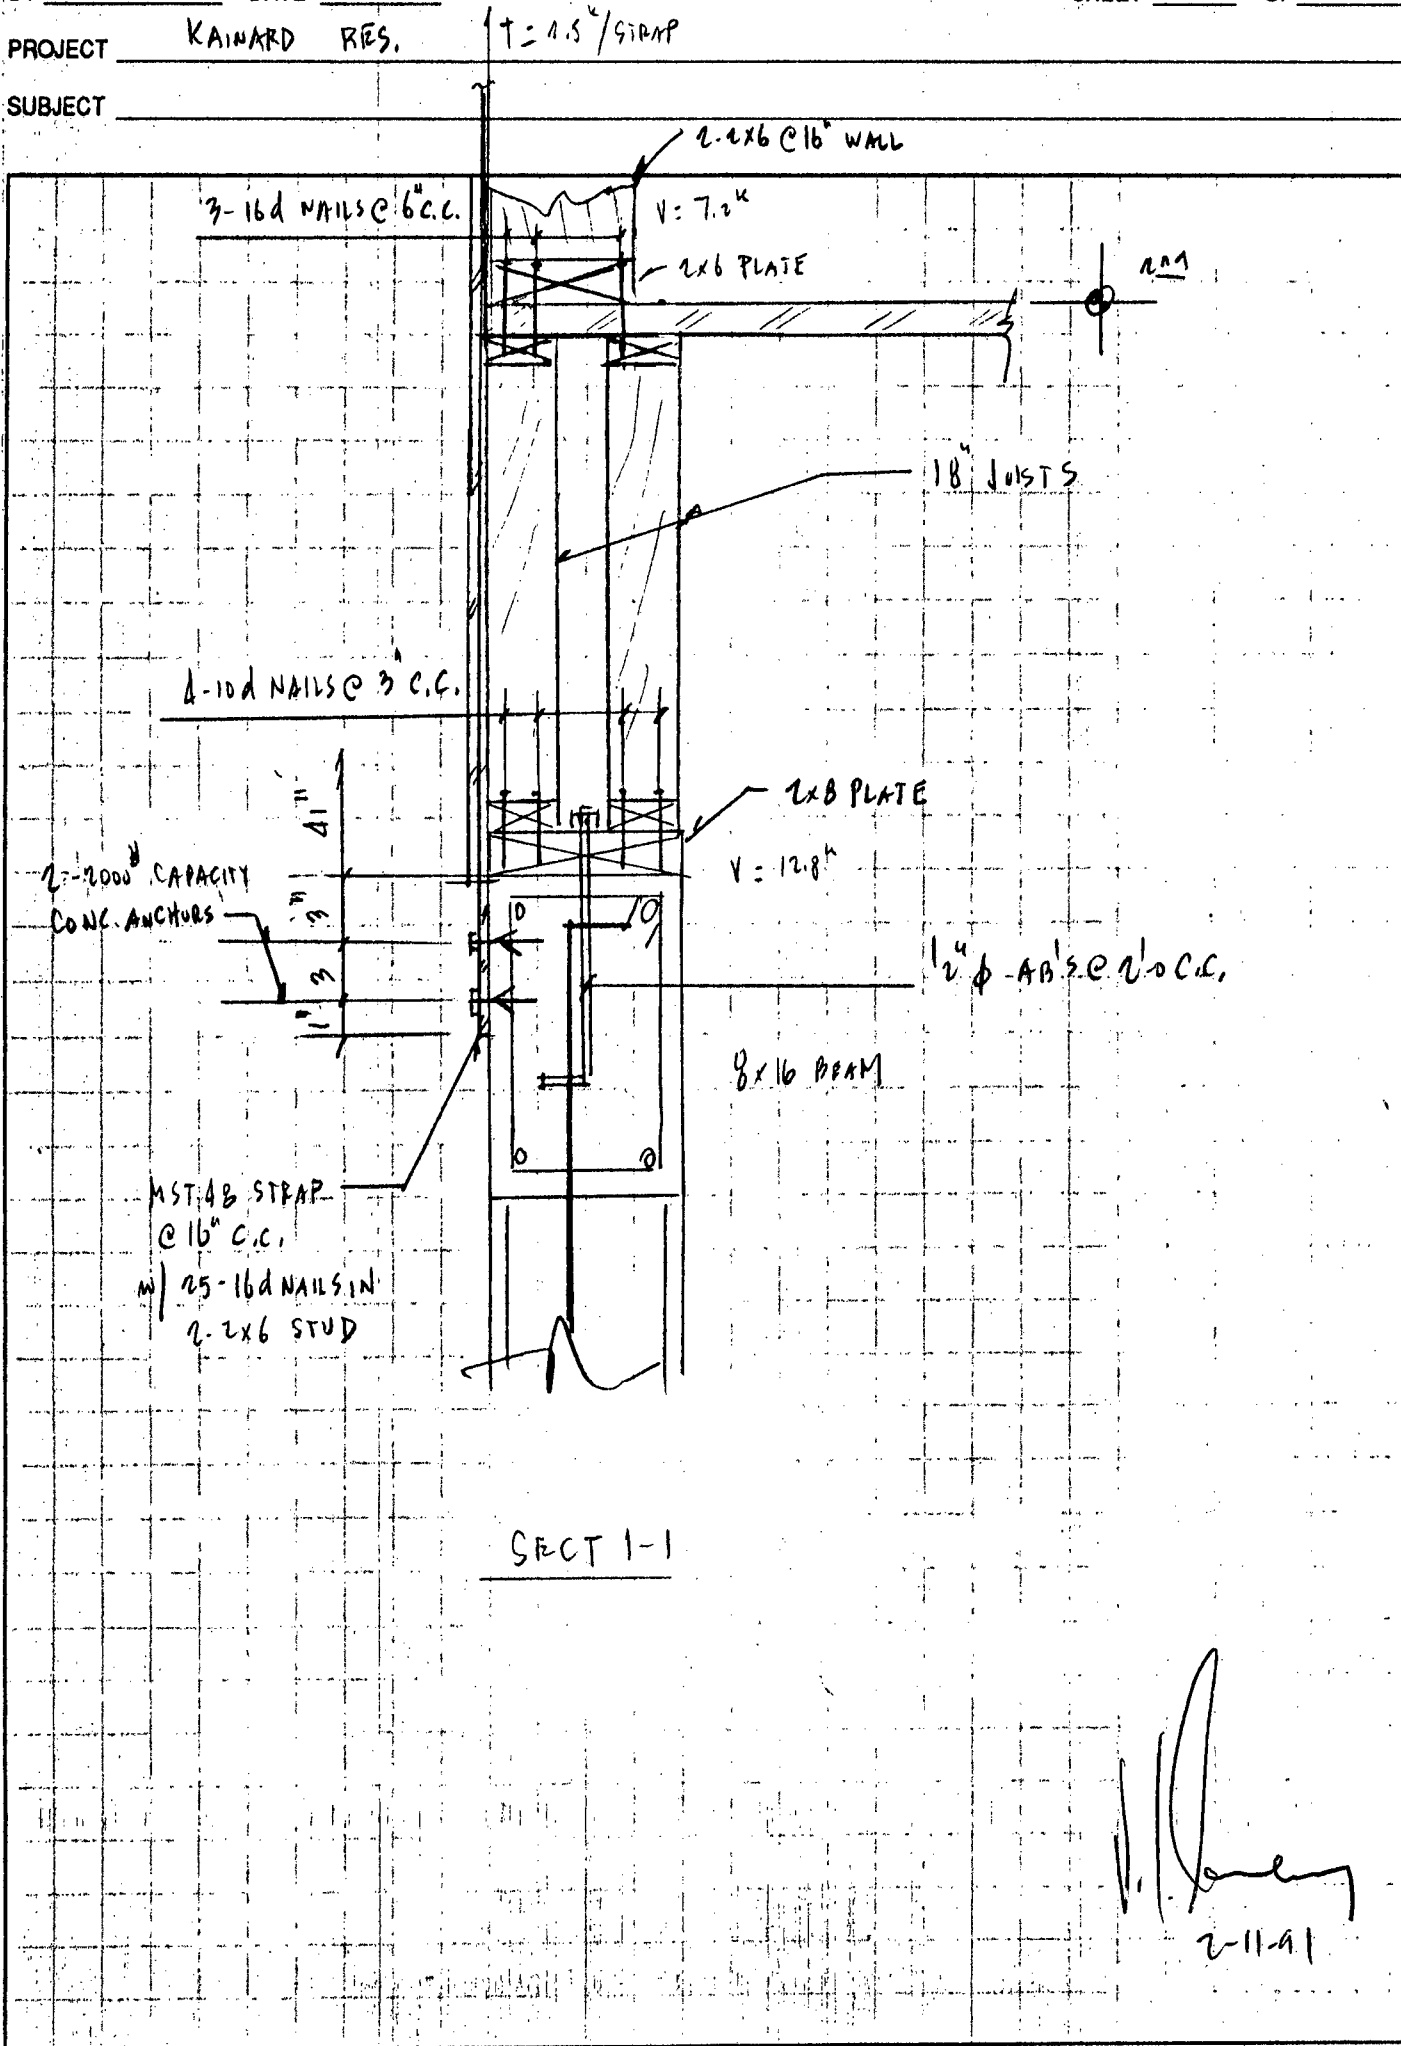 PROJECT KAINARD RES. T = 1.5ᵏ/STRAP
SUBJECT
2-2x6 @ 16" WALL
3-16d NAILS @ 6" C.C.
V = 7.2ᵏ
2x6 PLATE
2nd
18" JOISTS
4-10d NAILS @ 3" C.C.
41"
2x8 PLATE
2-2000# CAPACITY
CONC. ANCHORS
3"
V = 12.8ᵏ
3
1"
1/2" ϕ AB'S @ 2'-0 C.C.
8x16 BEAM
MST48 STRAP
@ 16" C.C.
w/ 25-16d NAILS IN
2-2x6 STUD
SECT 1-1
2-11-91